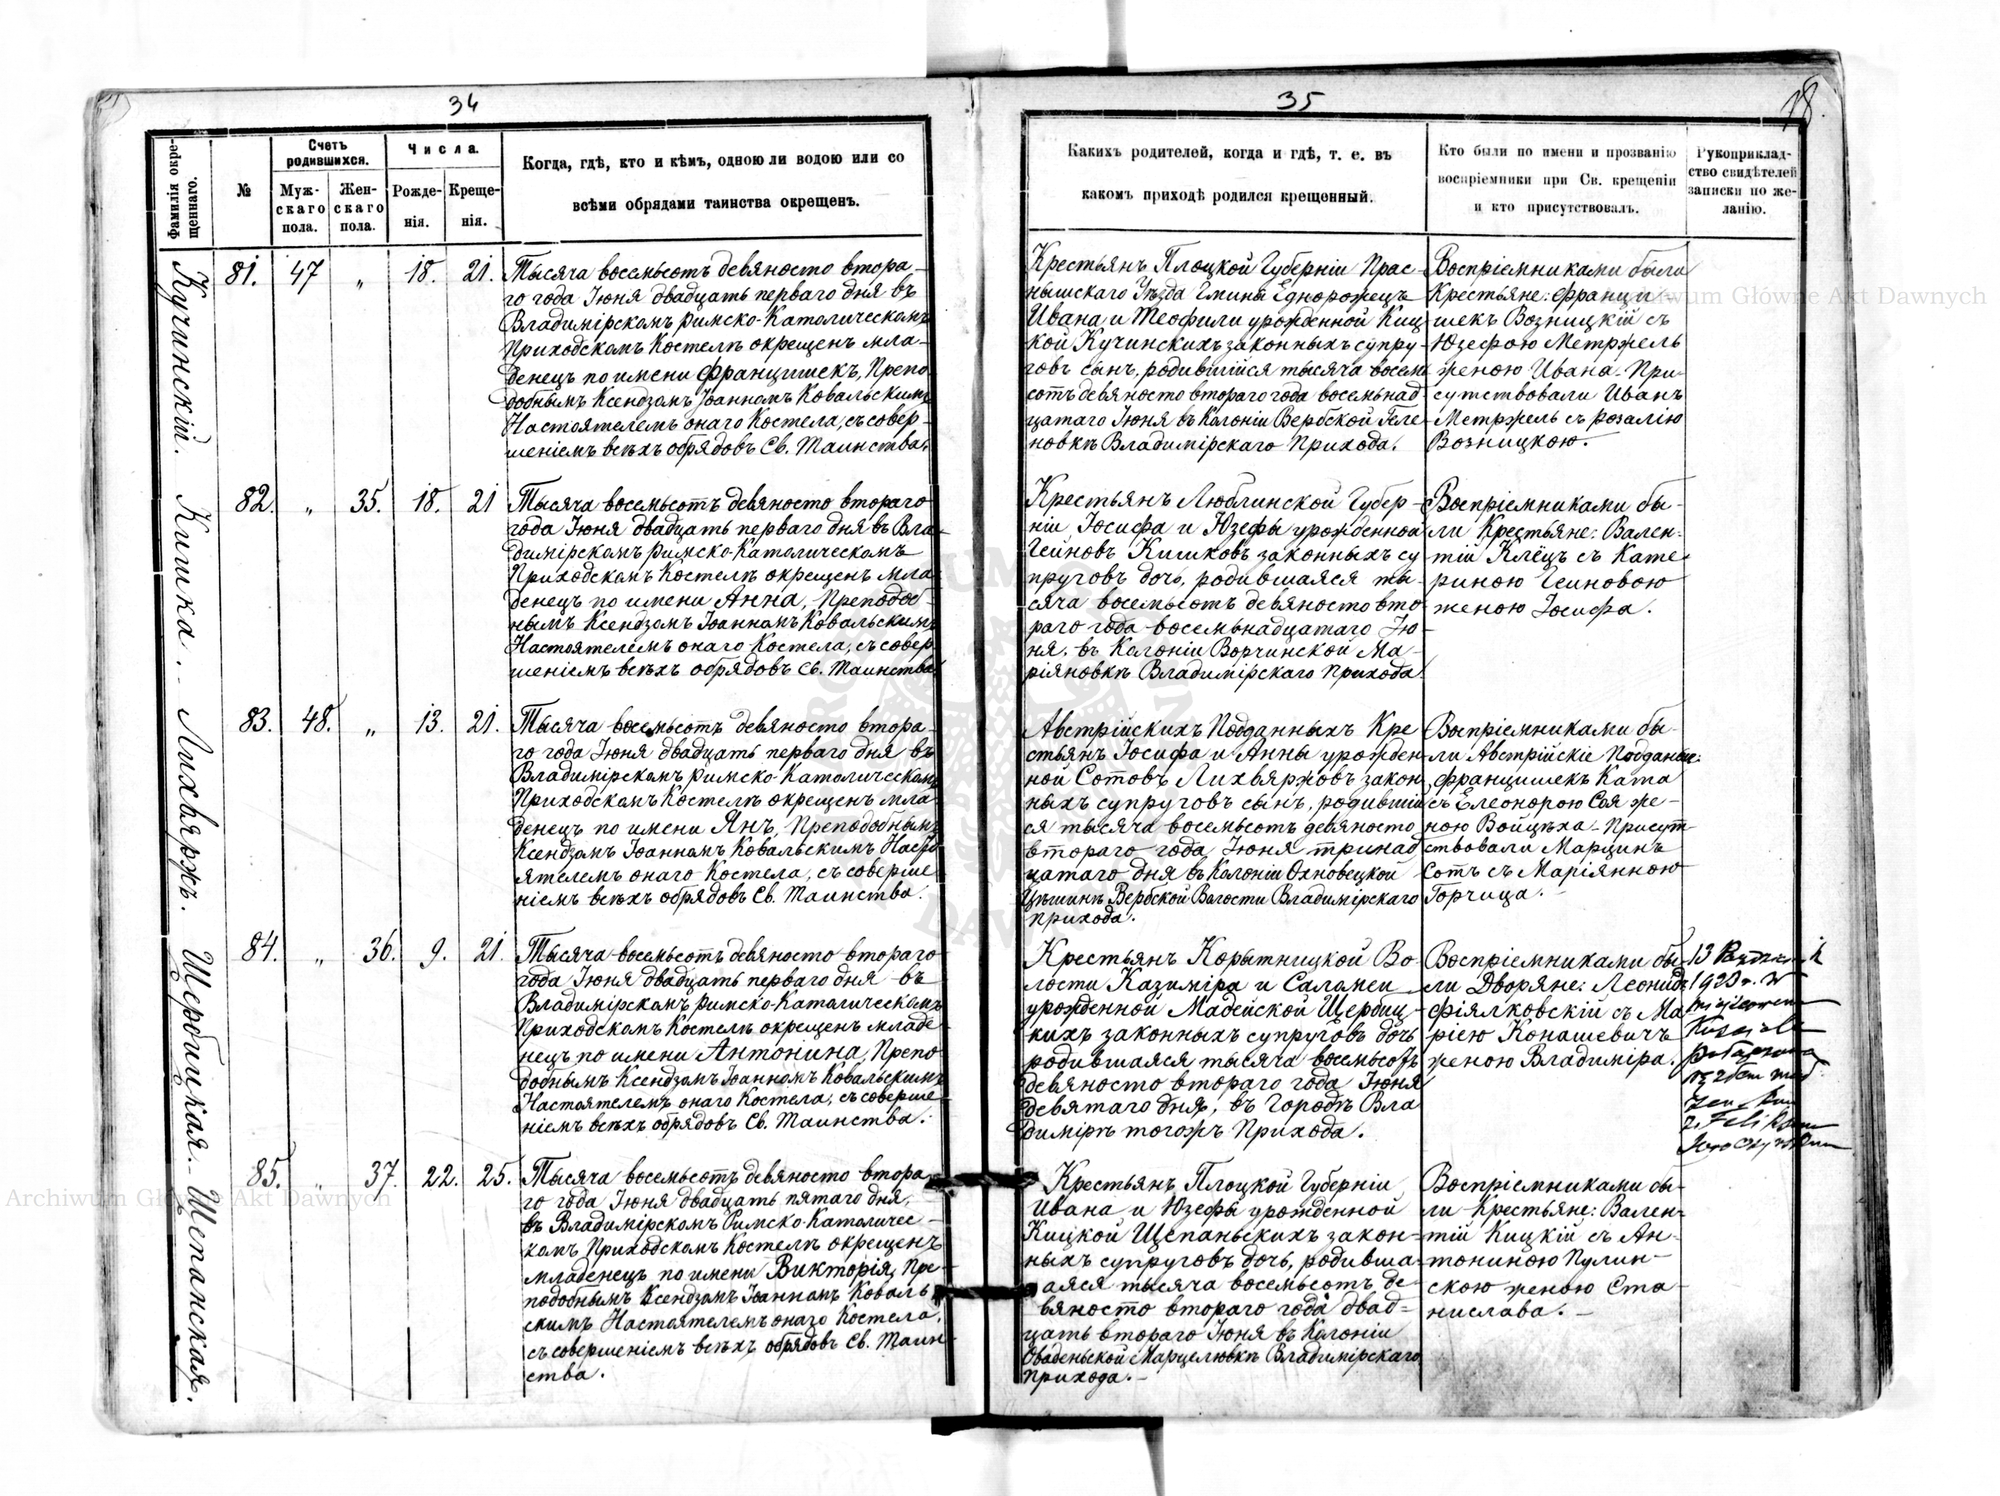 34
35
78.
Фамилія окре-
щеннаго.
№
Счетъ
родившихся.
Муж-
скаго
пола.
Жен-
скаго
пола.
Числа.
Рожде-
нія.
Креще-
нія.
Когда, гдѣ, кто и кѣмъ, одною ли водою или со
всѣми обрядами таинства окрещенъ.
Какихъ родителей, когда и гдѣ, т. е. въ
какомъ приходѣ родился крещенный.
Кто были по имени и прозванію
воспріемники при Св. крещеніи
и кто присутствовалъ.
Рукоприклад-
ство свидѣтелей
записки по же-
ланію.
Кучинскій.
81. 47 „ 18. 21.
Тысяча восемьсотъ девяносто втора-
го года Іюня двадцать перваго дня въ
Владимірскомъ Римско-Католическомъ
Приходскомъ Костелѣ окрещенъ мла-
денецъ по имени Францишекъ, Препо-
добнымъ Ксендзомъ Іоанномъ Ковальскимъ
Настоятелемъ онаго Костела, съ совер-
шеніемъ всѣхъ обрядовъ Св. Таинства.
Крестьянъ Плоцкой Губерніи Прас-
нышскаго Уѣзда Гмины Еднорожецъ
Ивана и Теофили урожденной Киц-
кой Кучинскихъ законныхъ супру-
говъ сынъ, родившійся тысяча восемь
сотъ девяносто втораго года восемьнад
цатаго Іюня въ Колоніи Вербской Геле-
новкѣ Владимірскаго Прихода.
Воспріемниками были
Крестьяне: Франци-
шекъ Возницкій съ
Юзефою Метржель
женою Ивана. При-
сутствовали Иванъ
Метржель съ Розалію
Возницкою.
Кишка
82. „ 35. 18. 21
Тысяча восемьсотъ девяносто втораго
года Іюня двадцать перваго дня въ Вла-
димірскомъ Римско-Католическомъ
Приходскомъ Костелѣ окрещенъ мла
денецъ по имени Анна, Преподоб-
нымъ Ксендзомъ Іоанномъ Ковальскимъ
Настоятелемъ онаго Костела, съ совер
шеніемъ всѣхъ обрядовъ Св. Таинства
Крестьянъ Люблинской Губер-
ніи Іосифа и Юзефы урожденной
Геиновъ Кишковъ законныхъ су
пруговъ дочь, родившаяся ты-
сяча восемьсотъ девяносто вто
раго года восемьнадцатаго Ію-
ня, въ Колоніи Ворчинской Ма-
ріяновкѣ Владимірскаго Прихода
Воспріемниками бы-
ли Крестьяне: Вален-
тій Клёцъ съ Кате
риною Геиновою
женою Іосифа.
Лихвяржъ.
83. 48. „ 13. 21.
Тысяча восемьсотъ девяносто втора-
го года Іюня двадцать перваго дня въ
Владимірскомъ Римско-Католическомъ
Приходскомъ Костелѣ окрещенъ мла
денецъ по имени Янъ, Преподобнымъ
Ксендзомъ Іоанномъ Ковальскимъ Насто
ятелемъ онаго Костела, съ соверше
ніемъ всѣхъ обрядовъ Св. Таинства.
Австрійскихъ Подданныхъ Кре
стьянъ Іосифа и Анны урожден-
ной Сотовъ Лихвяржовъ закон
ныхъ супруговъ сынъ, родившій
ся тысяча восемьсотъ девяносто
втораго года Іюня тринад
цатаго дня въ Колоніи Охновецкой
Цѣшинѣ Вербской Волости Владимірскаго
прихода.
Воспріемниками бы-
ли Австрійскіе Подданые:
Францишекъ Ката
съ Елеонорою Соя же-
ною Войцѣха. Присут-
ствовали Марцинъ
Сотъ съ Маріянною
Горчица.
Щербицкая.
84. „ 36. 9. 21.
Тысяча восемьсотъ девяносто втораго
года Іюня двадцать перваго дня въ
Владимірскомъ Римско-Католическомъ
Приходскомъ Костелѣ окрещенъ младе-
нецъ по имени Антонина, Препо-
добнымъ Ксендзомъ Іоанномъ Ковальскимъ
Настоятелемъ онаго Костела, съ соверше
ніемъ всѣхъ обрядовъ Св. Таинства.
Крестьянъ Корытницкой Во-
лости Казиміра и Саломеи
урожденной Мадейской Щербиц-
кихъ законныхъ супруговъ дочь
родившаяся тысяча восемьсотъ
девяносто втораго года Іюня
девятаго дня, въ Городѣ Вла
димірѣ тогожъ Прихода.
Воспріемниками бы-
ли Дворяне: Леонидъ
Фіялковскій съ Ма
ріею Конашевичъ
женою Владиміра.
13
1923 r. w
z Feliksem
Щепанская.
85. „ 37. 22. 25.
Тысяча восемьсотъ девяносто втора
го года Іюня двадцать пятаго дня,
въ Владимірскомъ Римско-Католичес-
комъ Приходскомъ Костелѣ окрещенъ
младенецъ по имени Викторія, Пре-
подобнымъ Ксендзомъ Іоанномъ Коваль
скимъ Настоятелемъ онаго Костела,
съ совершеніемъ всѣхъ обрядовъ Св. Таин-
ства.
Крестьянъ Плоцкой Губерніи
Ивана и Юзефы урожденной
Кицкой Щепаньскихъ закон-
ныхъ супруговъ дочь, родивша-
аяся тысяча восемьсотъ де-
вяносто втораго года двад-
цать втораго Іюня въ Колоніи
Оваденьской Марцелювкѣ Владимірскаго
прихода.
Воспріемниками бы-
ли Крестьяне: Вален-
тій Кицкій съ Ан-
тониною Пулин-
скою женою Ста
нислава.
Archiwum Główne Akt Dawnych
Archiwum Główne Akt Dawnych